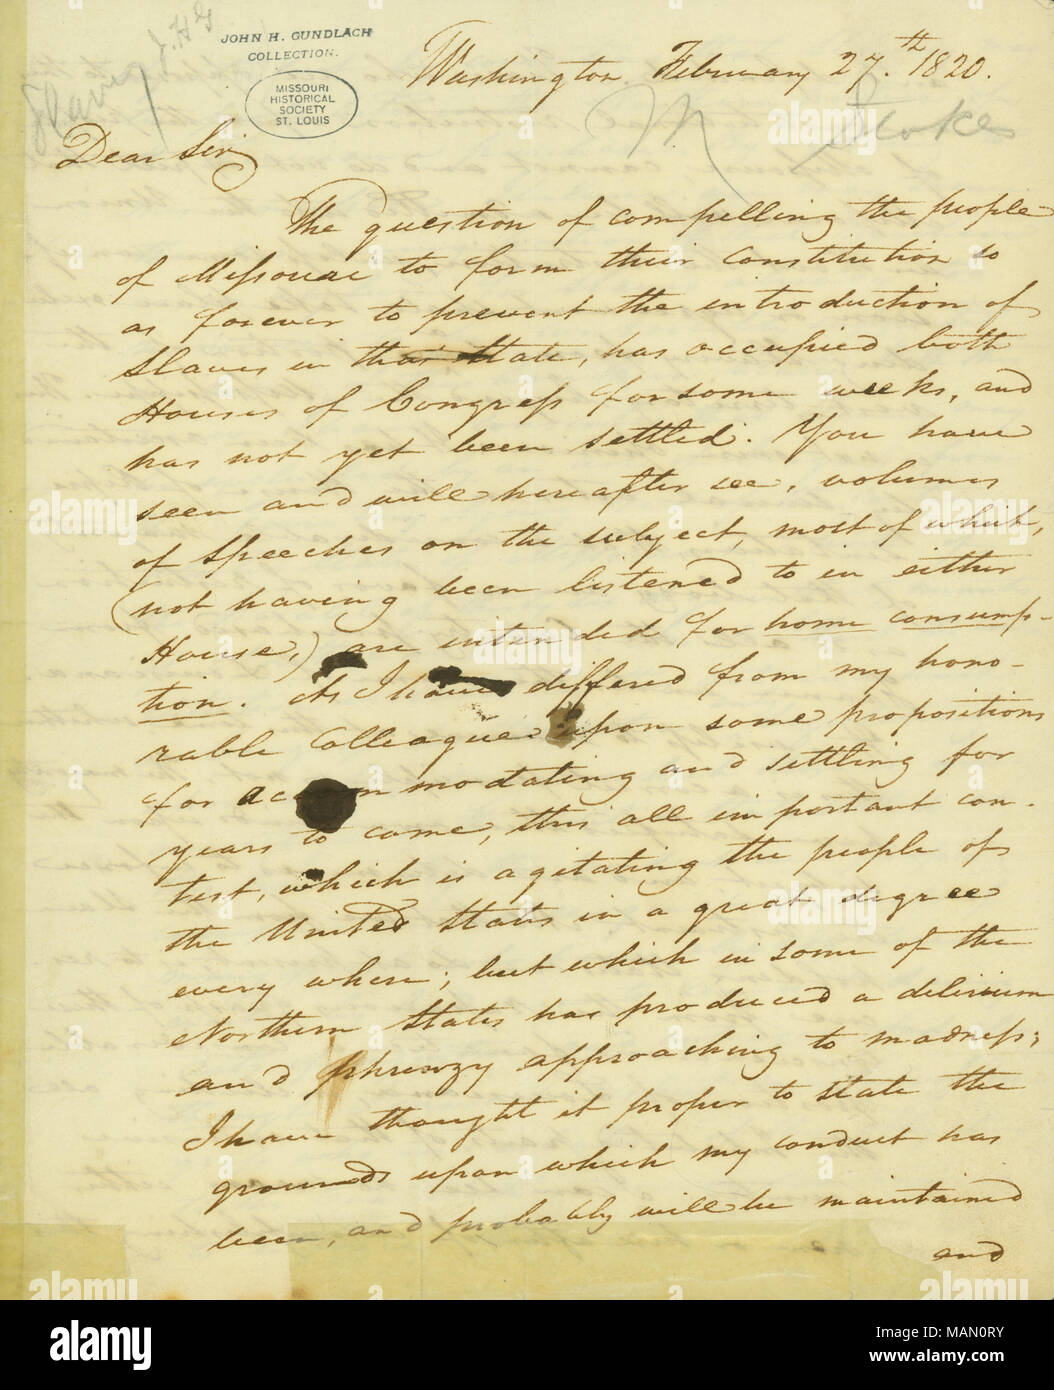 Slavery J.H.G
JOHN H. GUNDLACH
COLLECTION.
MISSOURI
HISTORICAL
SOCIETY
ST. LOUIS
Washington February 27.th 1820.
M. Stokes
Dear Sir
The question of compelling the people
of Missouri to form their constitution so
as forever to prevent the introduction of
Slaves in that State, has occupied both
Houses of Congress for some weeks, and
has not yet been settled. You have
seen and will hereafter see, volumes
of Speeches on the subject, most of which,
(not having been listened to in either
House,) are intended for home consump-
tion. As I have differed from my hono-
rable Colleague upon some propositions
for accommodating and settling for
years to come, this all important con-
test, which is agitating the people of
the United States in a great degree
every where; but which in some of the
Northern States has produced a delirium
and phrenzy approaching to madness;
I have thought it proper to state the
grounds upon which my conduct has
been, and probably will be maintained
and
alamy stock photo
alamy
Image ID: MAN0RY
www.alamy.com